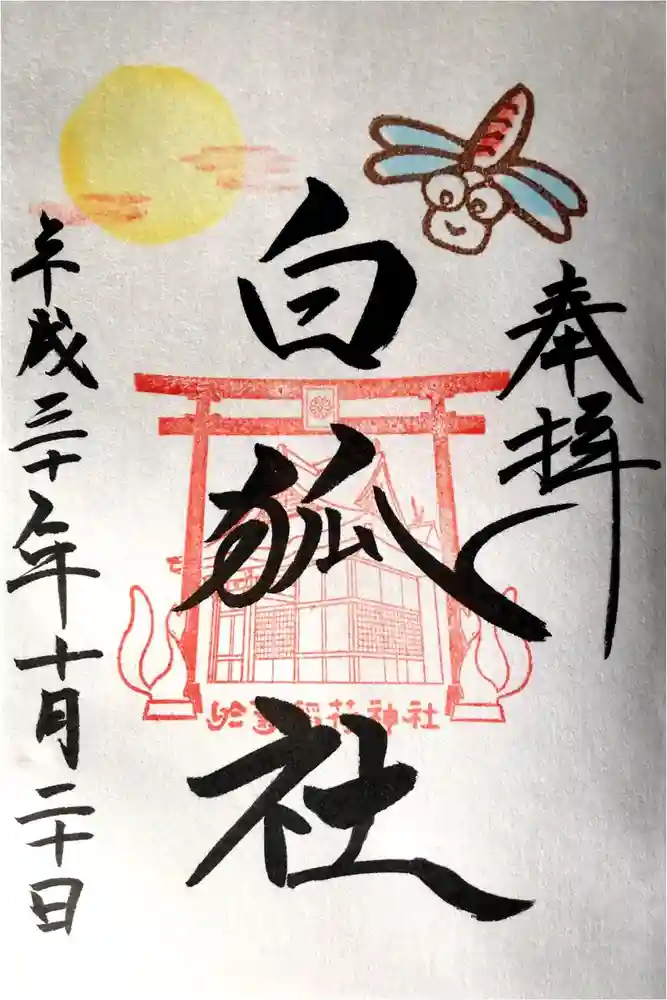 奉拝
白狐社
於菊稲荷神社
平成三十年十月二十日